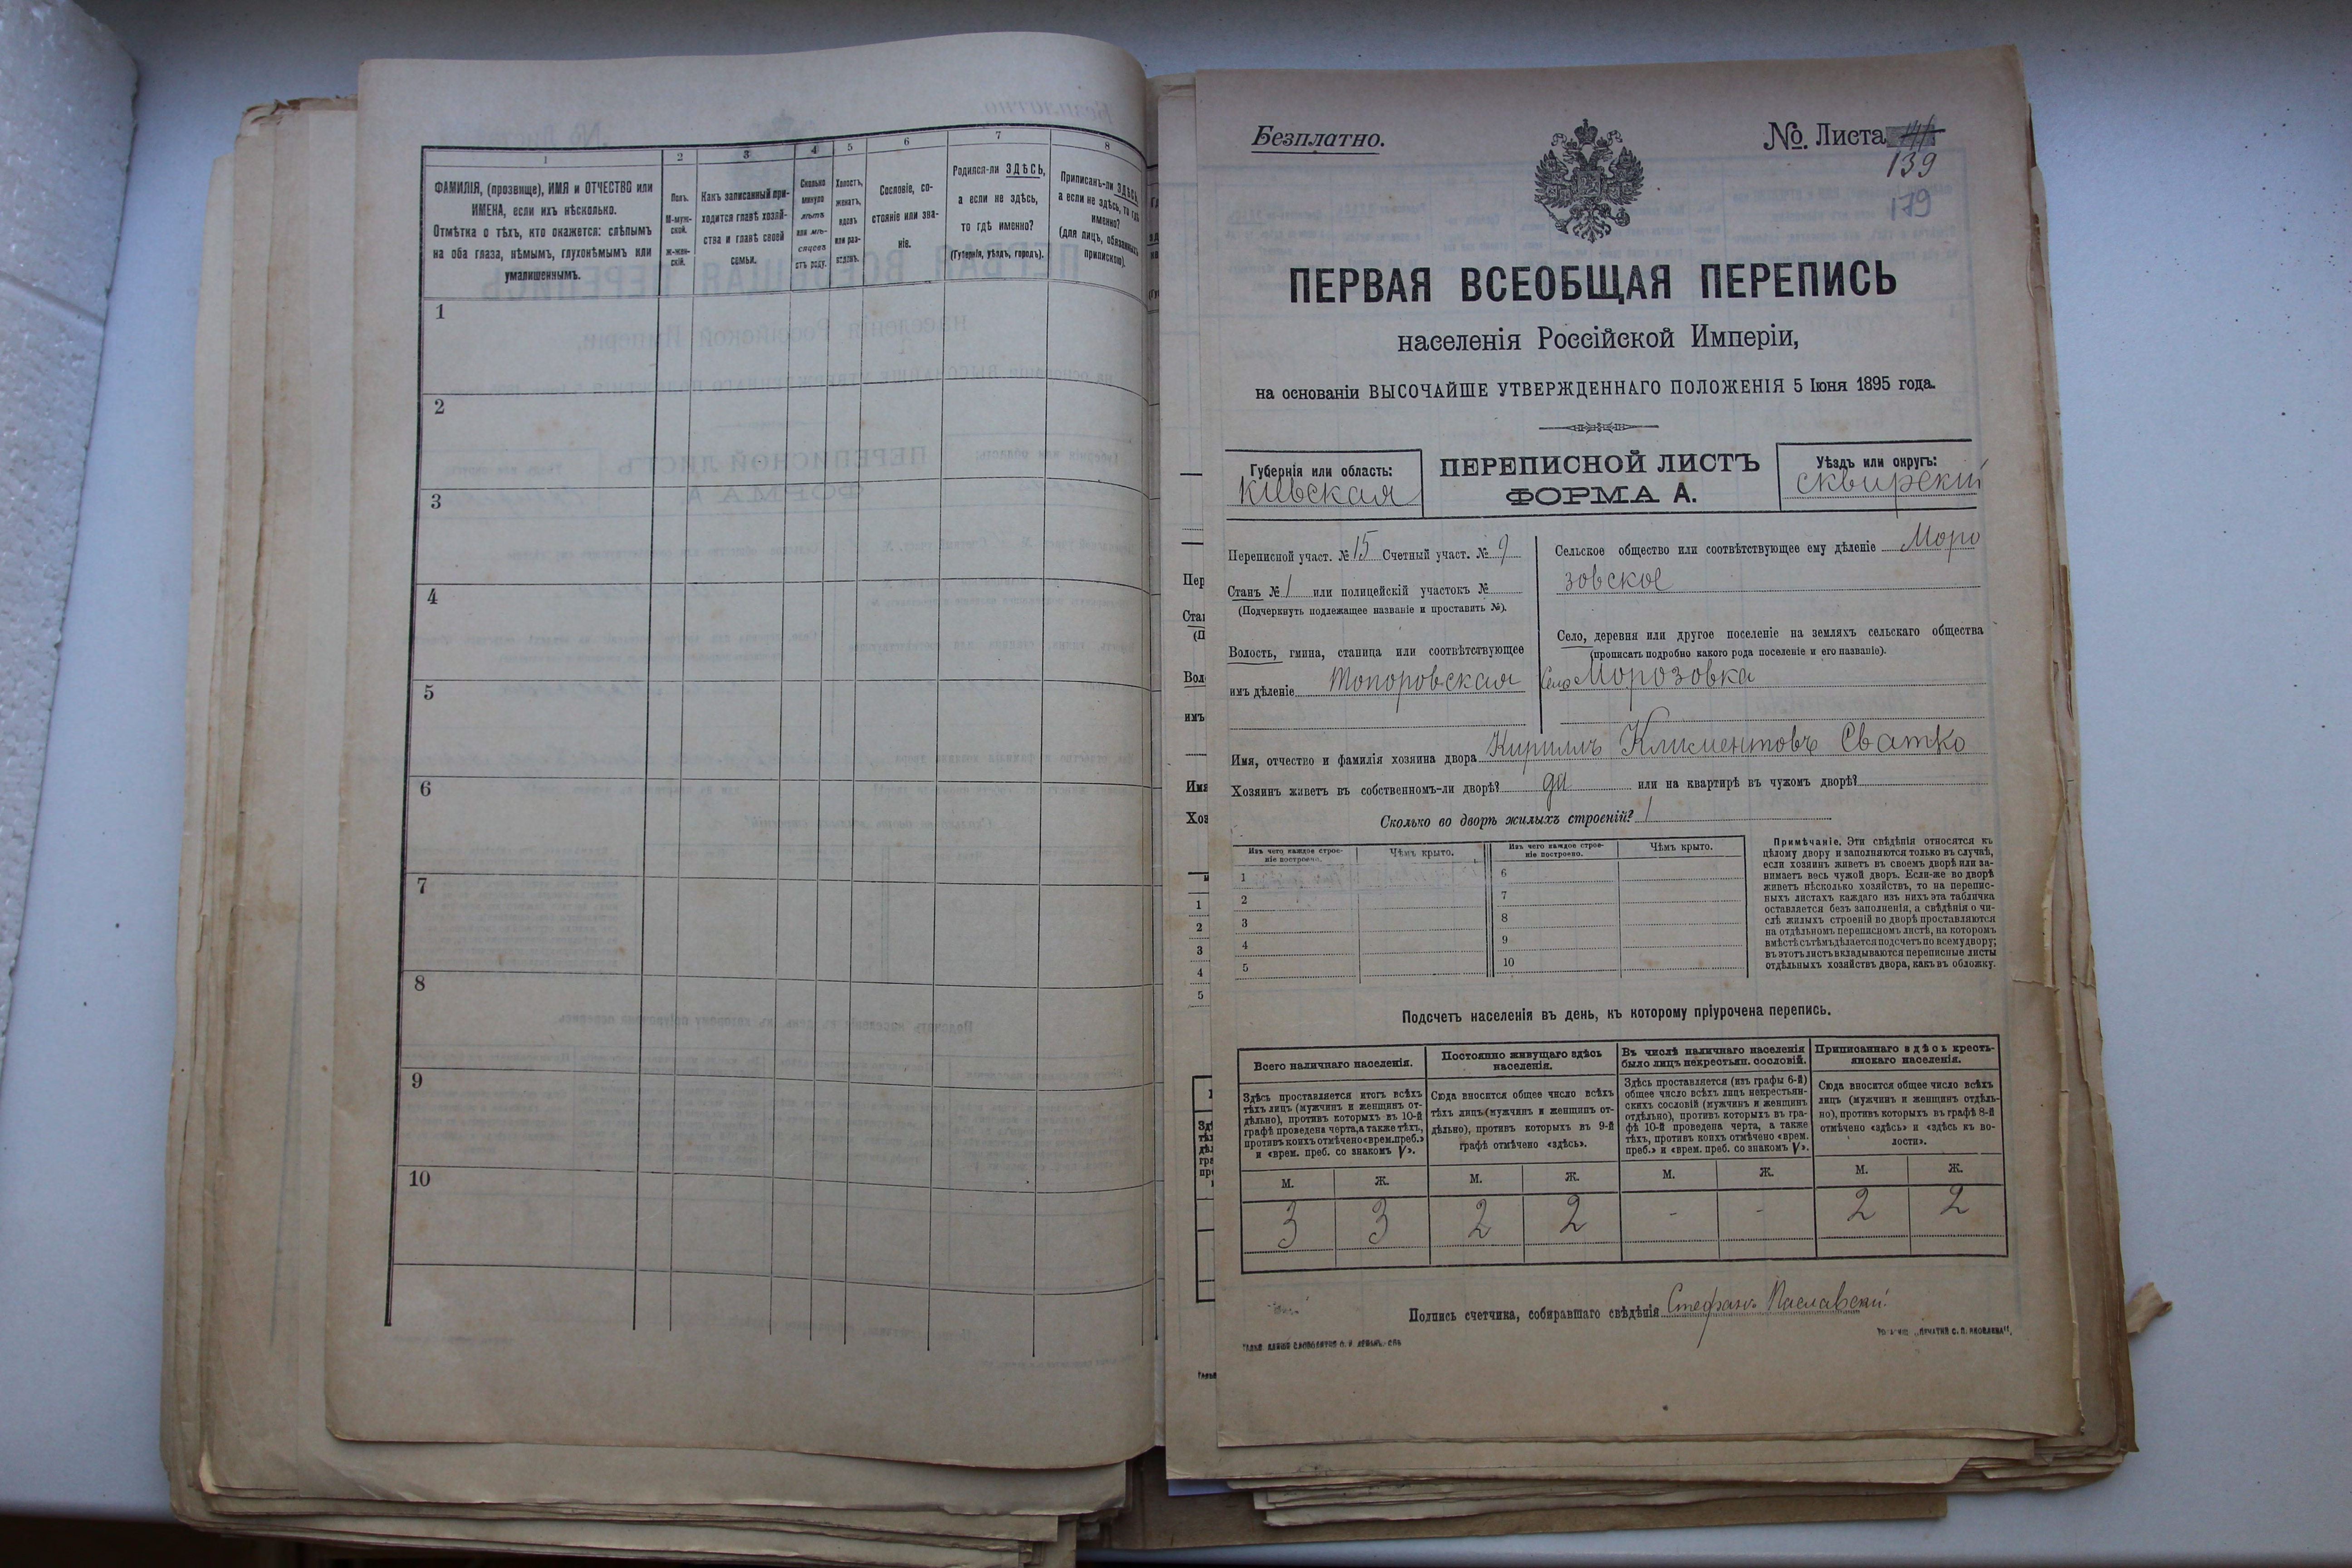 1
2
3
4
5
6
7
8
ФАМИЛІЯ, (прозвище), ИМЯ и ОТЧЕСТВО или
ИМЕНА, если ихъ нѣсколько.
Отмѣтка о тѣхъ, кто окажется: слѣпымъ
на оба глаза, нѣмымъ, глухонѣмымъ или
умалишеннымъ.
Полъ.
М-муж-
ской.
Ж-жен-
скій.
Какъ записанный при-
ходится главѣ хозяй-
ства и главѣ своей
семьи.
Сколько
минуло
лѣтъ
или мѣ-
сяцевъ
отъ роду.
Холостъ,
женатъ,
вдовъ
или раз-
веденъ.
Сословіе, со-
стояніе или зва-
ніе.
Родился-ли ЗДѢСЬ,
а если не здѣсь,
то гдѣ именно?
(Губернія, уѣздъ, городъ).
Приписанъ-ли ЗДѢСЬ,
а если не здѣсь, то гдѣ
именно?
(для лицъ, обязанныхъ
припискою).
1
2
3
4
5
6
7
8
9
10
Безплатно.
№ Листа
139
179
ПЕРВАЯ ВСЕОБЩАЯ ПЕРЕПИСЬ
населенія Россійской Имперіи,
на основаніи ВЫСОЧАЙШЕ УТВЕРЖДЕННАГО ПОЛОЖЕНІЯ 5 Іюня 1895 года.
Губернія или область:
Кіевская
ПЕРЕПИСНОЙ ЛИСТЪ
ФОРМА А.
Уѣздъ или округъ:
Сквирскій
Переписной участ. № 15 Счетный участ. № 9
Станъ № 1 или полицейскій участокъ №
(Подчеркнуть подлежащее названіе и проставить №).
Волость, гмина, станица или соотвѣтствующее
имъ дѣленіе Топоровская
Сельское общество или соотвѣтствующее ему дѣленіе Моро
зовское
Село, деревня или другое поселеніе на земляхъ сельскаго общества
(прописать подробно какого рода поселеніе и его названіе).
Село Морозовка
Имя, отчество и фамилія хозяина двора Кириллъ Климентовъ Сватко
Хозяинъ живетъ въ собственномъ-ли дворѣ? да или на квартирѣ въ чужомъ дворѣ?
Сколько во дворѣ жилыхъ строеній? 1
Изъ чего каждое строе-
ніе построено.
Чѣмъ крыто.
Изъ чего каждое строе-
ніе построено.
Чѣмъ крыто.
1
2
3
4
5
6
7
8
9
10
Примѣчаніе. Эти свѣдѣнія относятся къ
цѣлому двору и заполняются только въ случаѣ,
если хозяинъ живетъ въ своемъ дворѣ или за-
нимаетъ весь чужой дворъ. Если-же во дворѣ
живетъ нѣсколько хозяйствъ, то на перепис-
ныхъ листахъ каждаго изъ нихъ эта табличка
оставляется безъ заполненія, а свѣдѣнія о чи-
слѣ жилыхъ строеній во дворѣ проставляются
на отдѣльномъ переписномъ листѣ, на которомъ
вмѣстѣ съ тѣмъ дѣлается подсчетъ по всему двору;
въ этотъ листъ вкладываются переписные листы
отдѣльныхъ хозяйствъ двора, какъ въ обложку.
Подсчетъ населенія въ день, къ которому пріурочена перепись.
Всего наличнаго населенія.
Постоянно живущаго здѣсь
населенія.
Въ числѣ наличнаго населенія
было лицъ некрестьян. сословій.
Приписаннаго здѣсь кресть-
янскаго населенія.
Здѣсь проставляется итогъ всѣхъ
тѣхъ лицъ (мужчинъ и женщинъ от-
дѣльно), противъ которыхъ въ 10-й
графѣ проведена черта, а также тѣхъ,
противъ коихъ отмѣчено «врем. преб.»
и «врем. преб. со знакомъ V».
Сюда вносится общее число всѣхъ
тѣхъ лицъ (мужчинъ и женщинъ от-
дѣльно), противъ которыхъ въ 9-й
графѣ отмѣчено «здѣсь».
Здѣсь проставляется (изъ графы 6-й)
общее число всѣхъ лицъ некрестьян-
скихъ сословій (мужчинъ и женщинъ
отдѣльно), противъ которыхъ въ гра-
фѣ 10-й проведена черта, а также
тѣхъ, противъ коихъ отмѣчено «врем.
преб.» и «врем. преб. со знакомъ V».
Сюда вносится общее число всѣхъ
лицъ (мужчинъ и женщинъ отдѣль-
но), противъ которыхъ въ графѣ 8-й
отмѣчено «здѣсь» и «здѣсь къ во-
лости».
М. Ж. М. Ж. М. Ж. М. Ж.
3 3 2 2 - - 2 2
Подпись счетчика, собиравшаго свѣдѣнія Стефанъ